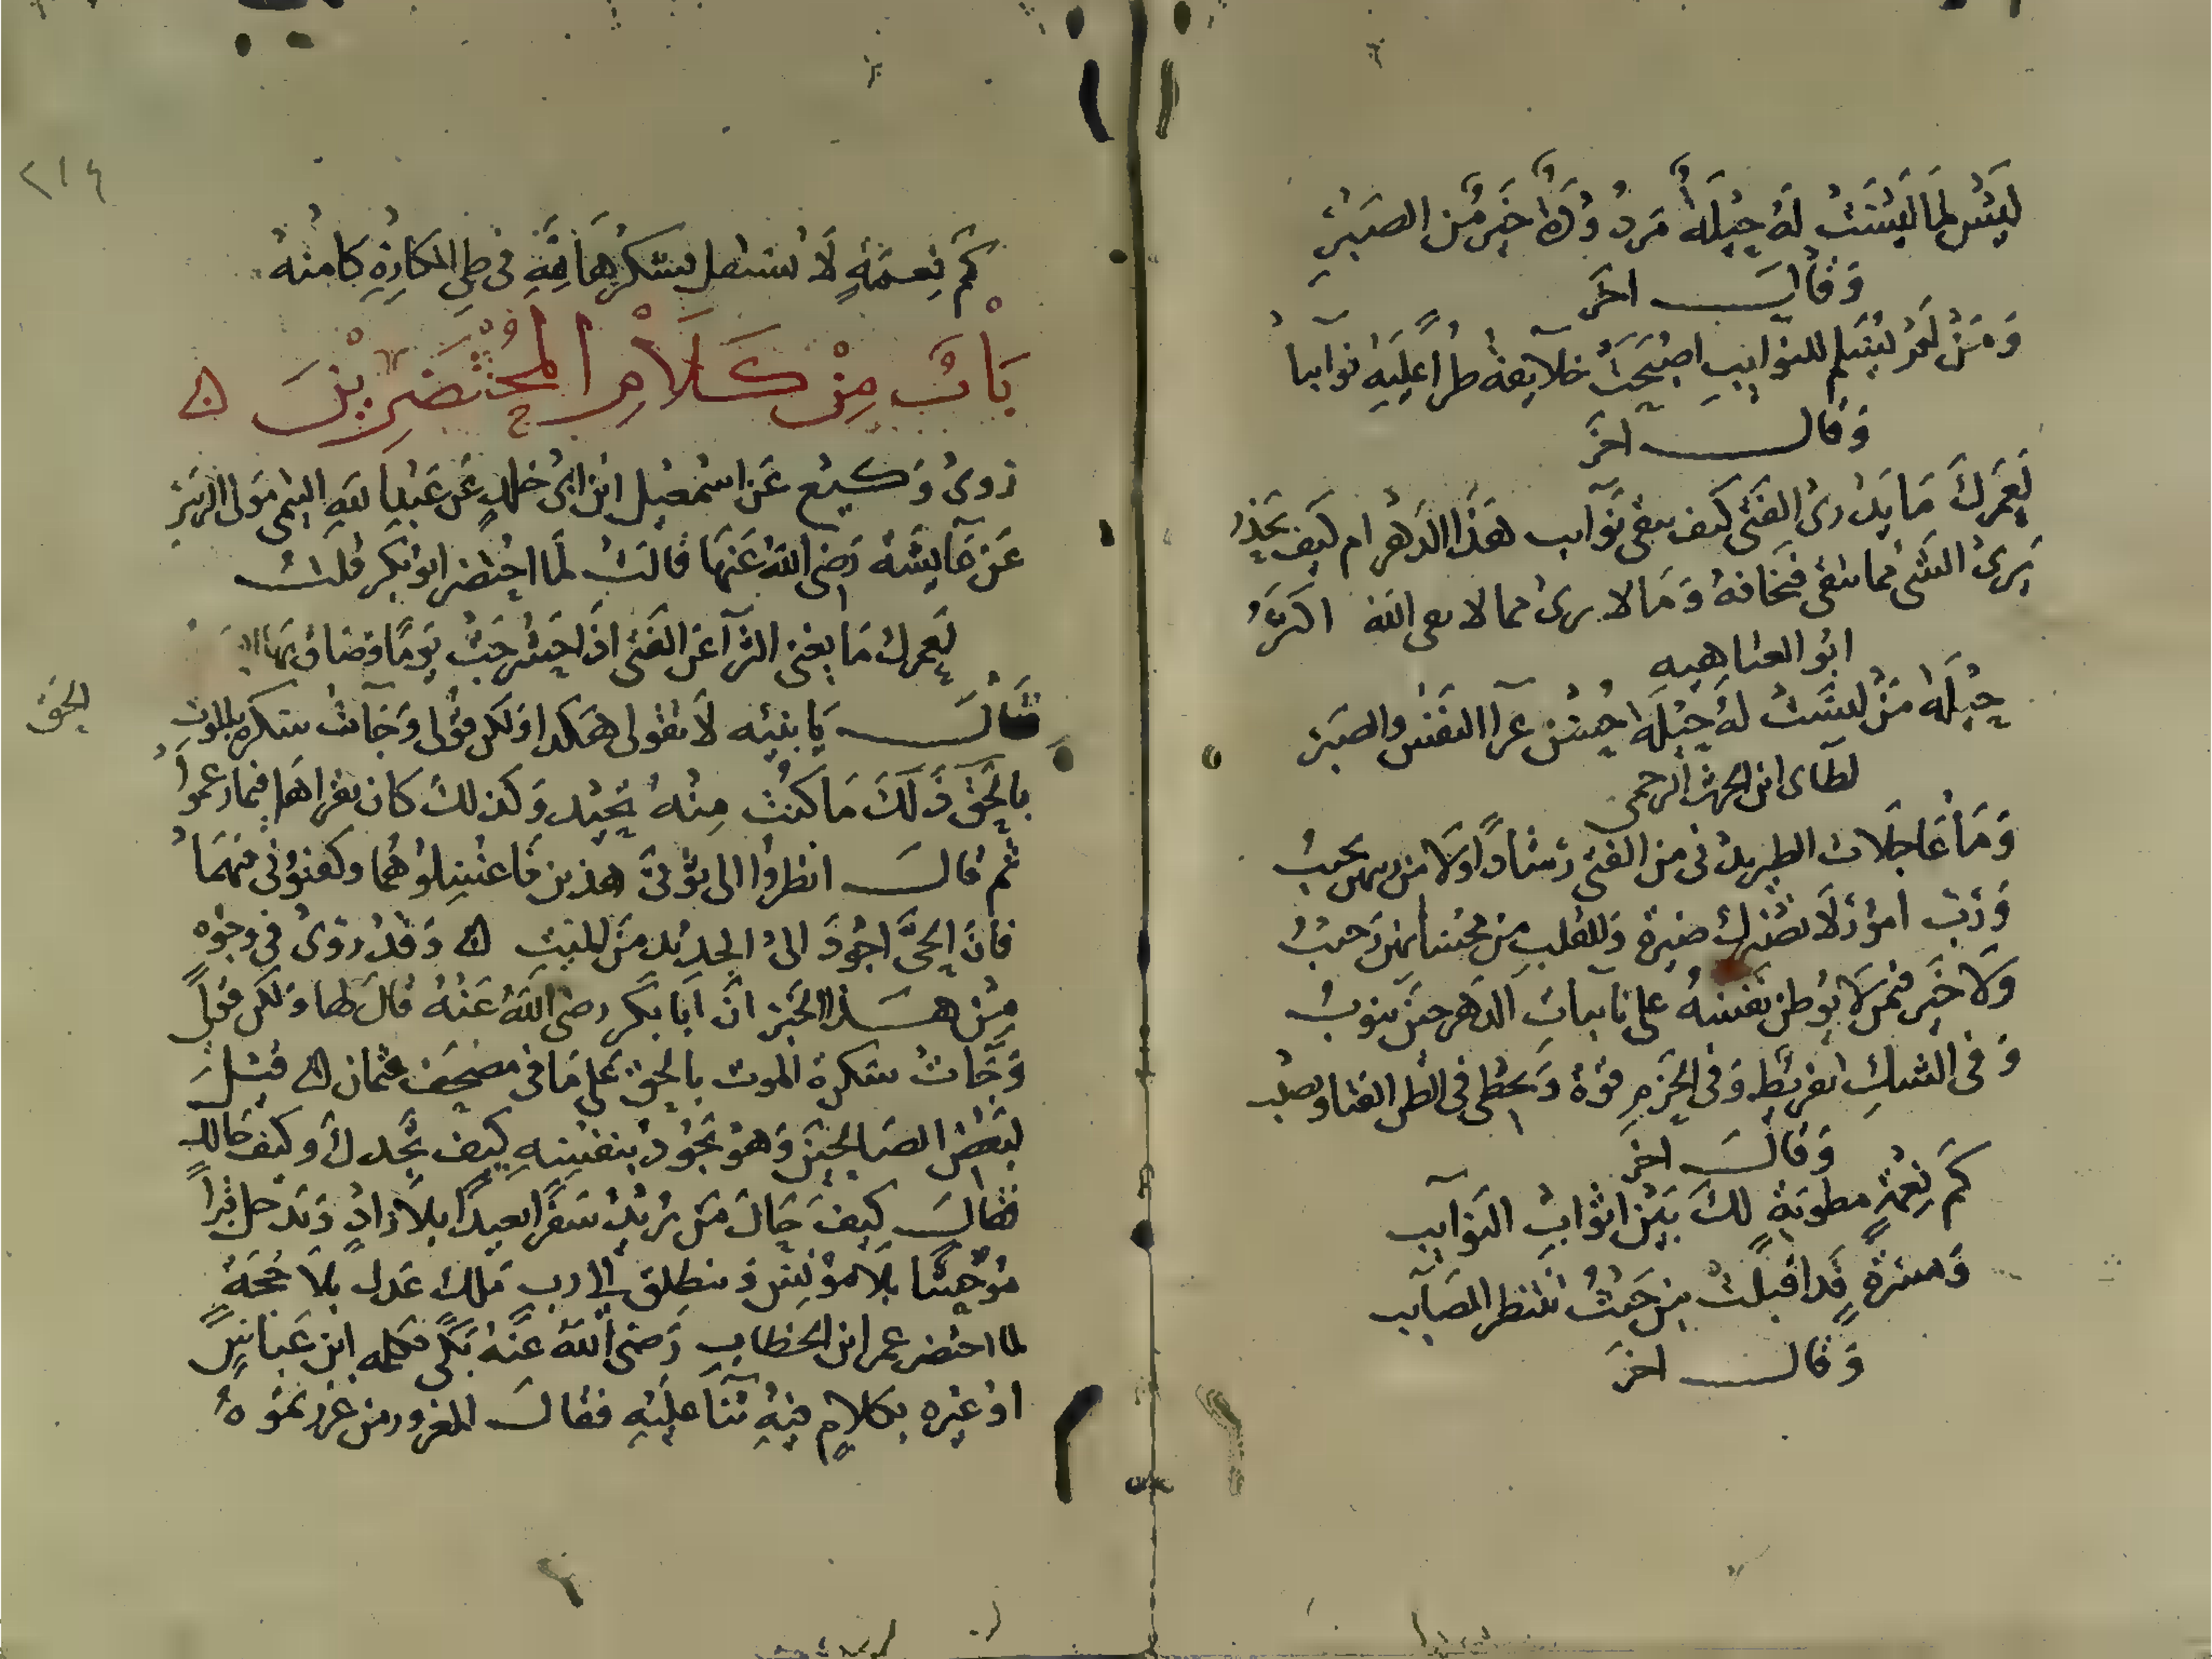 ليس لما ليست له حيلة موجودة خير من الصبر
وقال اخر
ومن لم يسلم للنوايب اصبحت خلايقه طرا عليه نوايبا
وقال اخر
لعمرك ما يدرى الفتى كيف يتقى نوايب هذا الدهر ام كيف يحذر
يرى الشى مما يتقى فيخافه وما لا يرى مما لا يقى الله اكثر
ابو العتاهيه
حيلة من ليست له حيلة حسن عزا النفس والصبر
ابن الحرث البرجمى
وما عاجلات الطير يدنى من الفتى رشادا ولا من ريثهن يخيب
ورب امور لا تضيرك ضيرة وللقلب من مخشاتهن وجيب
ولا خير فيمن لا يوطن نفسه على نايبات الدهر حين ينوب
وفى الشك تفريط وفى الحزم قوة ويخطى فى الظن الفتا ويصيب
وقال اخر
كم نعمة مطوية لك بين اثواب النوايب
ومسرة قد اقبلت من حيث تنتظر المصايب
وقال اخر
٢١٤
كم نعمة لا تستقل بشكرها لله فى طى المكاره كامنه
باب من كلام المحتضرين
روى وكيع عن اسمعيل ابن ابى خلد عن عبد الله البهى مولى الزبير
عن عايشه رضى الله عنها قالت لما احتضر ابو بكر قلت
لعمرك ما يغنى الثرآ عن الفتى اذا حشرجت يوما وضاق بها
فقال يا بنيه لا تقولى هكذا ولكن قولى وجآت سكره الموت
الحق
بالحق ذلك ما كنت منه تحيد وكذلك كان يقراها فيما زعموا
ثم قال انظروا الى ثوبى هذين فاغسلوهما وكفنونى فيهما
فان الحى احوج الى الجديد من الميت ه وقد روى فى وجوه
من هذا الخبر ان ابا بكر رضى الله عنه قال لها ولكن قولى
وجآت سكرة الموت بالحق على ما فى مصحف عثمان ه قيل
لبعض الصالحين وهو يجود بنفسه كيف تجدك وكيف حالك
فقال كيف حال من يريد سفرا بعيدا بلا زاد ويدخل قبرا
موحشا بلا مونس وينطلق الى رب ملك عدل بلا حجة
لما احتضر عمر ابن الخطاب رضى الله عنه بكى فكلمه ابن عباس
او غيره بكلام فيه ثنا عليه فقال المغرور من غررتموه